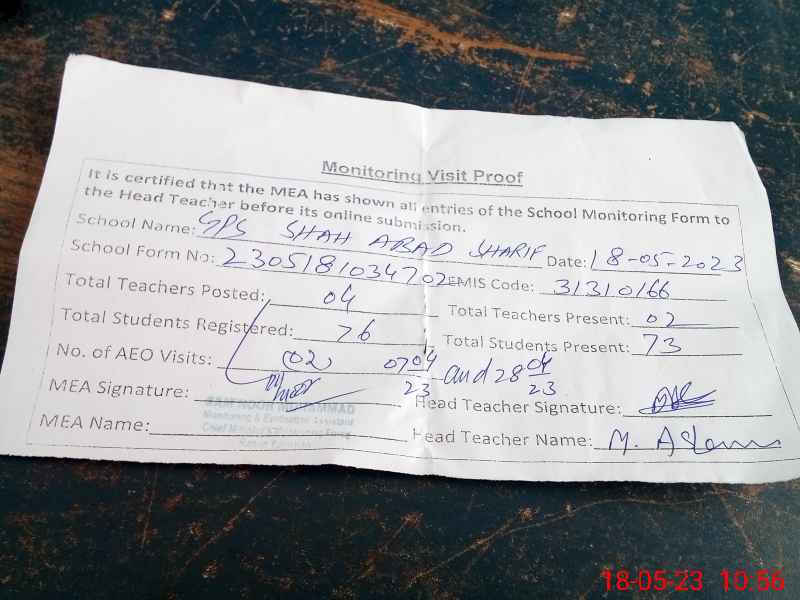 Monitoring Visit Proof
It is certified that the MEA has shown all entries of the School Monitoring Form to
the Head Teacher before its online submission.
School Name: GPS SHAH ABAD SHARIF Date: 18-05-2023
School Form No: 2305181034702 EMIS Code: 31310166
Total Teachers Posted: 04 Total Teachers Present: 02
Total Students Registered: 76 Total Students Present: 73
No. of AEO Visits: 02 07 04/23 and 28 04/23
MEA Signature: Head Teacher Signature:
MEA Name: Head Teacher Name: M. Aslam
NOOR MUHAMMAD
Monitoring & Evaluation Assistant
18-05-23 10:56